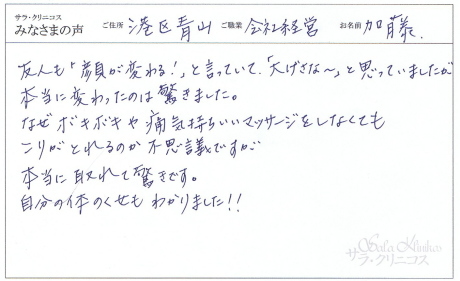 サラ・クリニコス
みなさまの声 ご住所 港区青山 ご職業 会社経営 お名前 加藤.
友人も「顔が変わる!」と言っていて、「大げさな〜」と思っていましたが
本当に変わったのは驚きました。
なぜボキボキや痛気持ちいいマッサージをしなくても
こりがとれるのが不思議ですが
本当に取れて驚きです。
自分の体のくせもわかりました!!
Sala Klinikos
サラ・クリニコス